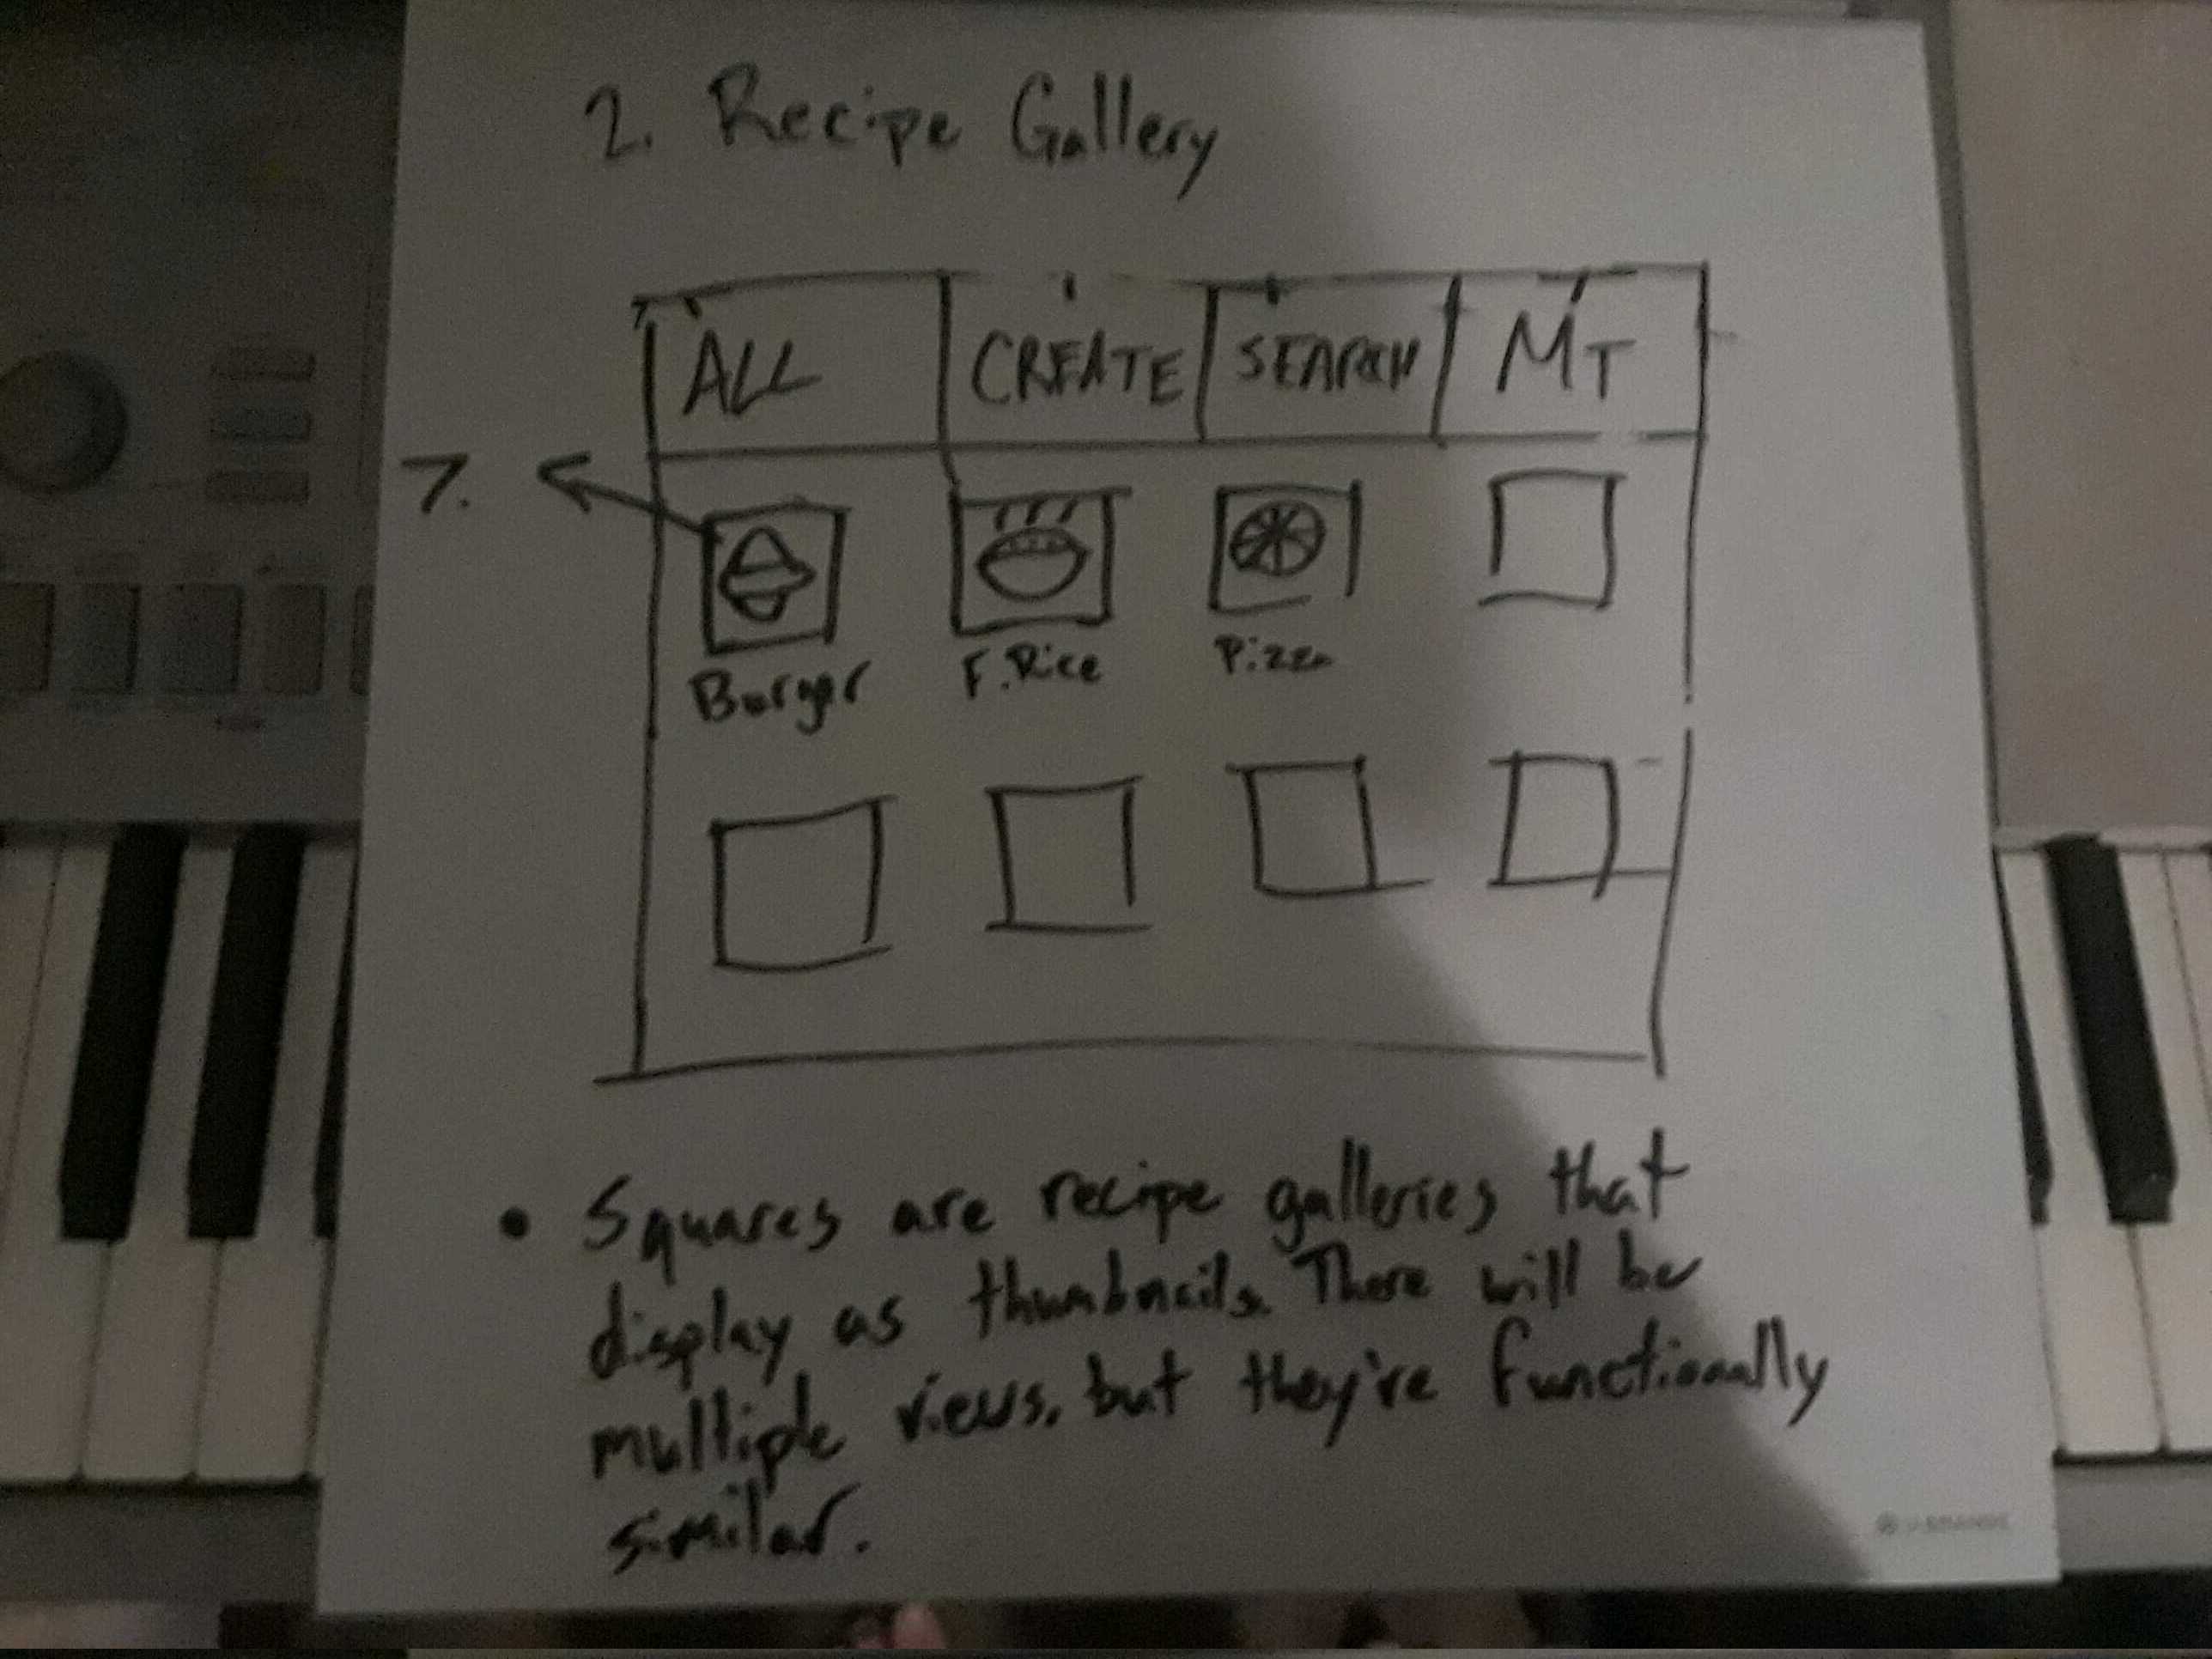 2. Recipe Gallery
ALL CREATE SEARCH MT
7.
Burger F.Rice Pizza
• Squares are recipe galleries that
display as thumbnails. There will be
multiple views, but they're functionally
similar.